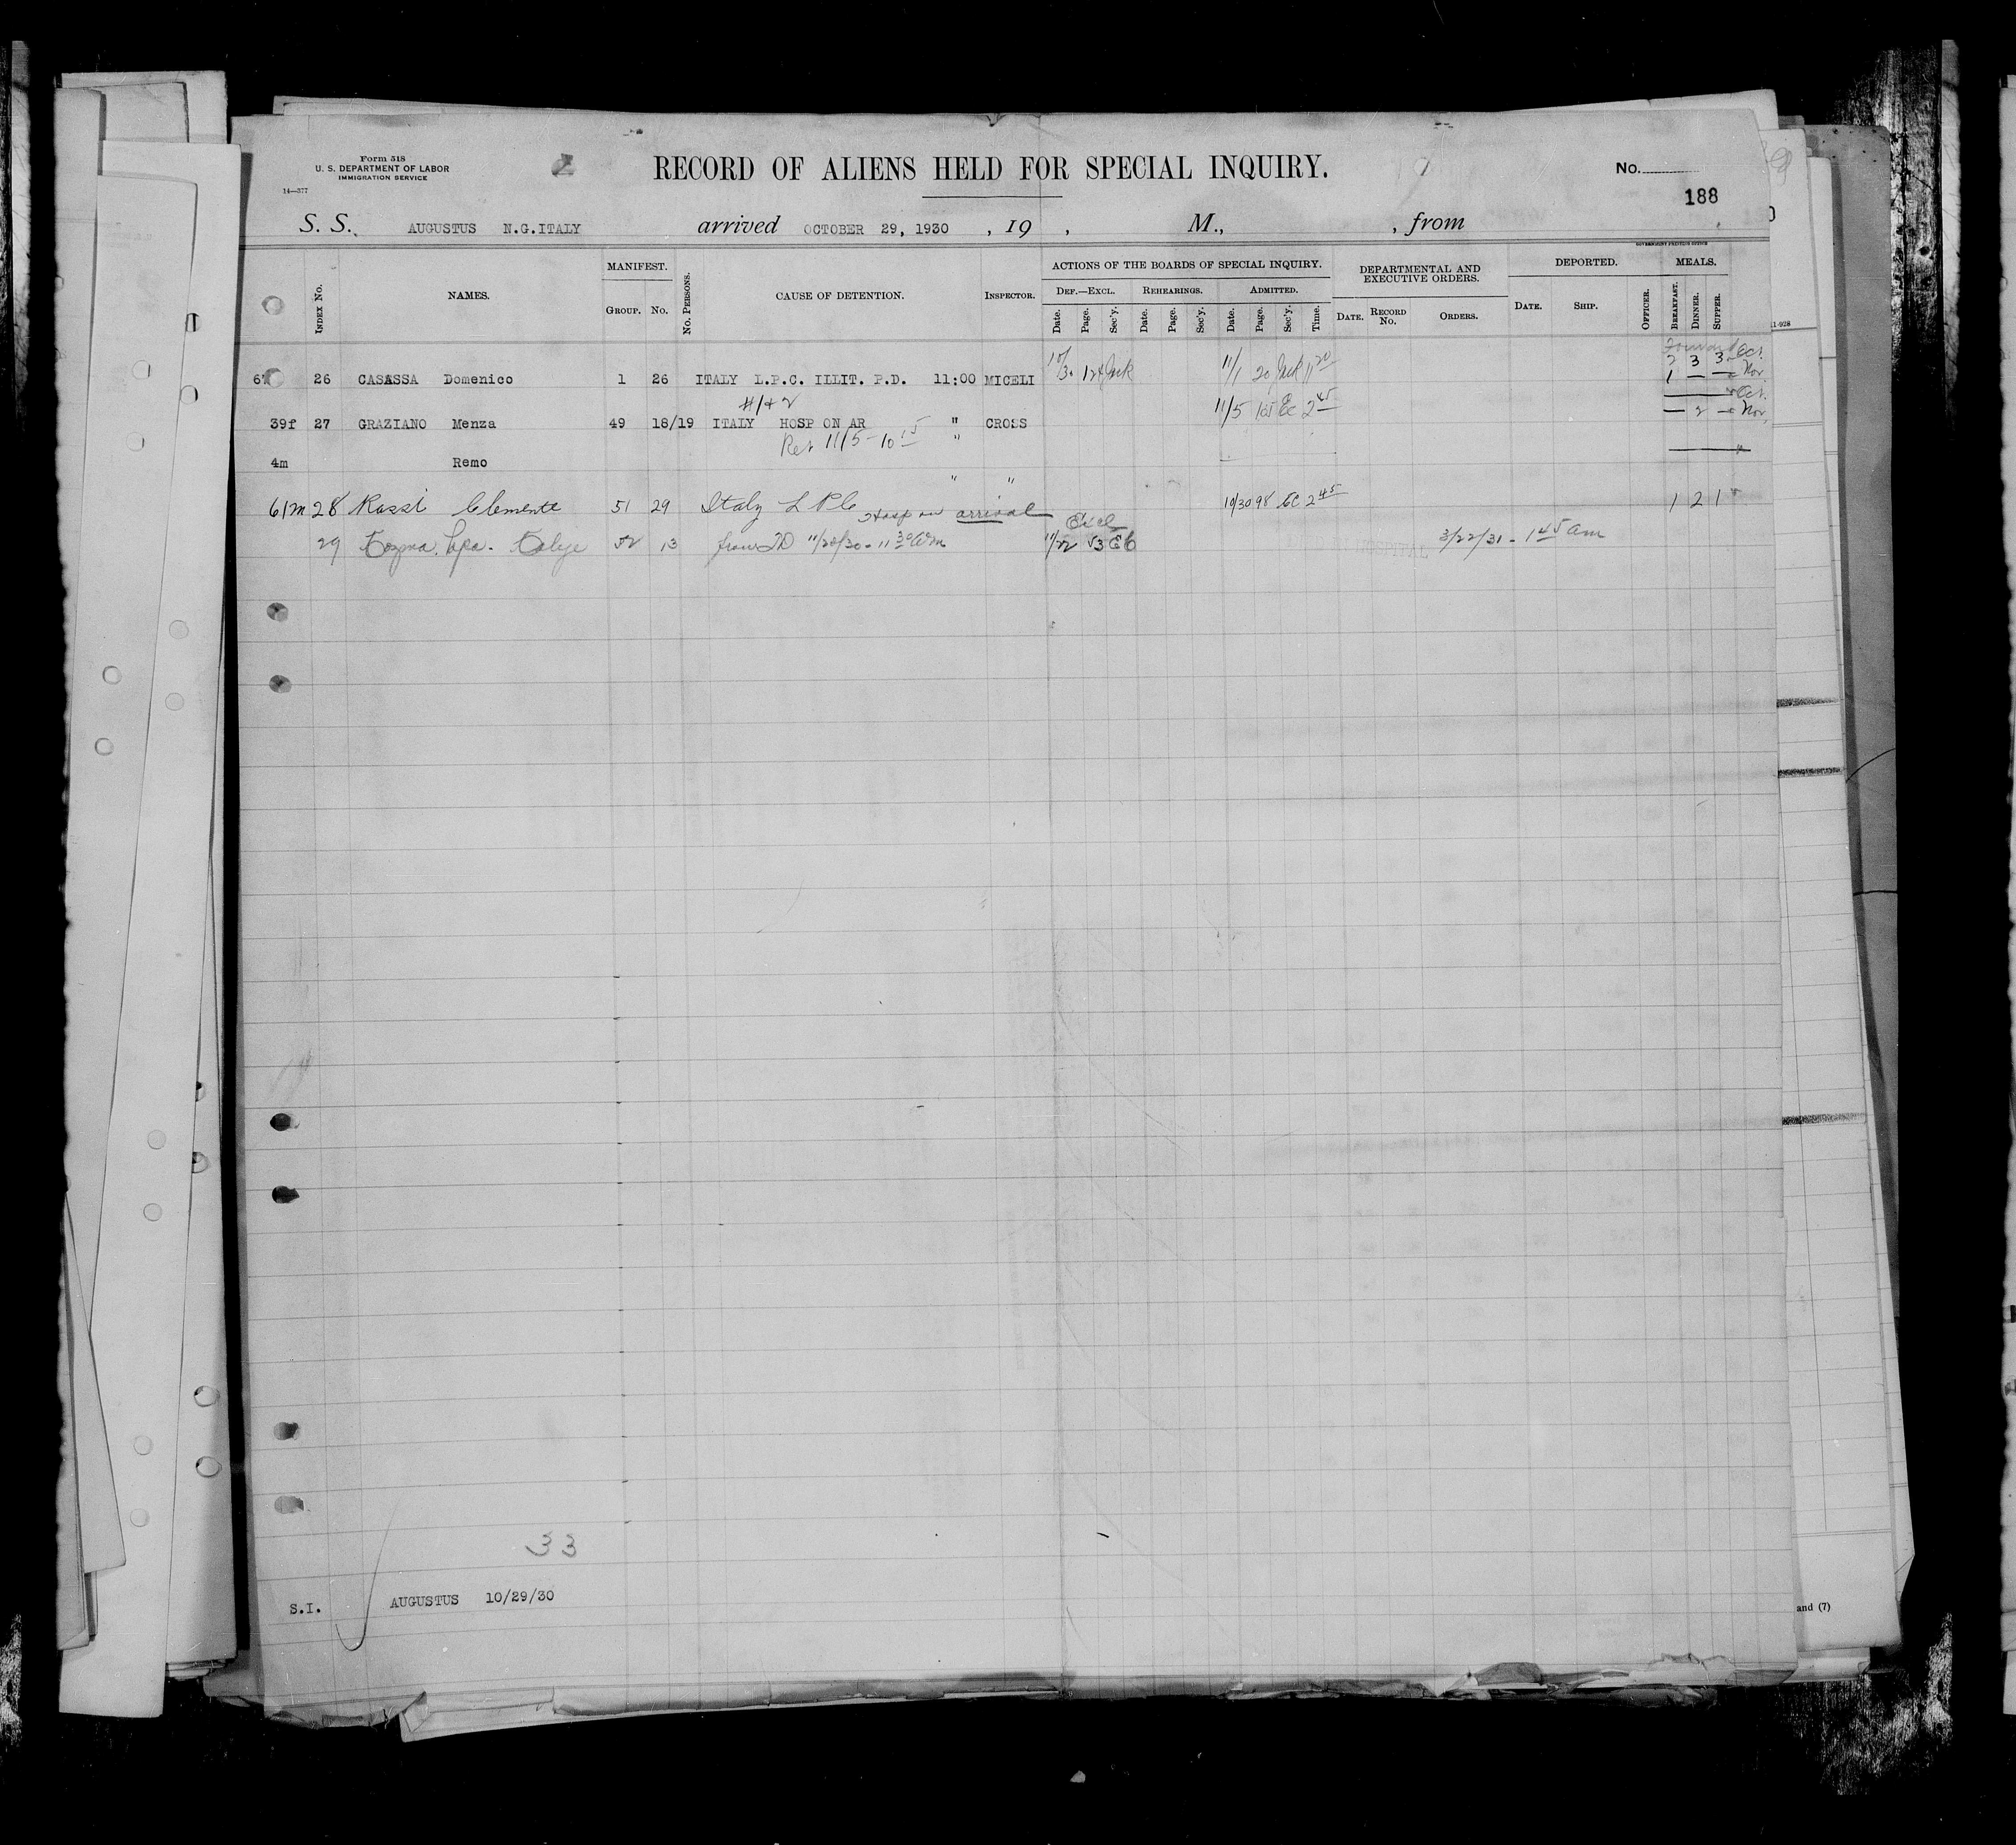 Form 518
U. S. DEPARTMENT OF LABOR
IMMIGRATION SERVICE
14—377
RECORD OF ALIENS HELD FOR SPECIAL INQUIRY.
No.
188
S. S. AUGUSTUS N.G.ITALY arrived OCTOBER 29, 1930 , 19 , M., , from
GOVERNMENT PRINTING OFFICE
INDEX No. NAMES. MANIFEST. GROUP. No. No. PERSONS. CAUSE OF DETENTION. INSPECTOR.
ACTIONS OF THE BOARDS OF SPECIAL INQUIRY. DEF.—EXCL. Date. Page. Sec'y. REHEARINGS. Date. Page. Sec'y. ADMITTED. Date. Page. Sec'y. Time.
DEPARTMENTAL AND EXECUTIVE ORDERS. DATE. RECORD No. ORDERS.
DEPORTED. DATE. SHIP. OFFICER. MEALS. BREAKFAST. DINNER. SUPPER.
11-928
Forward
2 3 3 Oct.
26 CASASSA Domenico 1 26 ITALY L.P.C. ILLIT. P.D. 11:00 MICELI 10/30 124 Jack 11/1 20 Jack 11 20 1 — — Nov
#1+2
Oct.
39f 27 GRAZIANO Menza 49 18/19 ITALY HOSP ON AR " CROSS 11/5 Ec 2 45 — 2 — Nov.
Ret 11/5 - 10 15 "
4m Remo
" "
61m 28 Rossi Clemente 51 29 Italy L P C 10/30 98 EC 2 45 1 2 1
Hosp on arrival
Excl
29 52 13 from TD 11/20/30 - 11 30 am 11/22 53 EC HOSPITAL 3/22/31 - 1 45 am
33
S.I. AUGUSTUS 10/29/30
and (7)